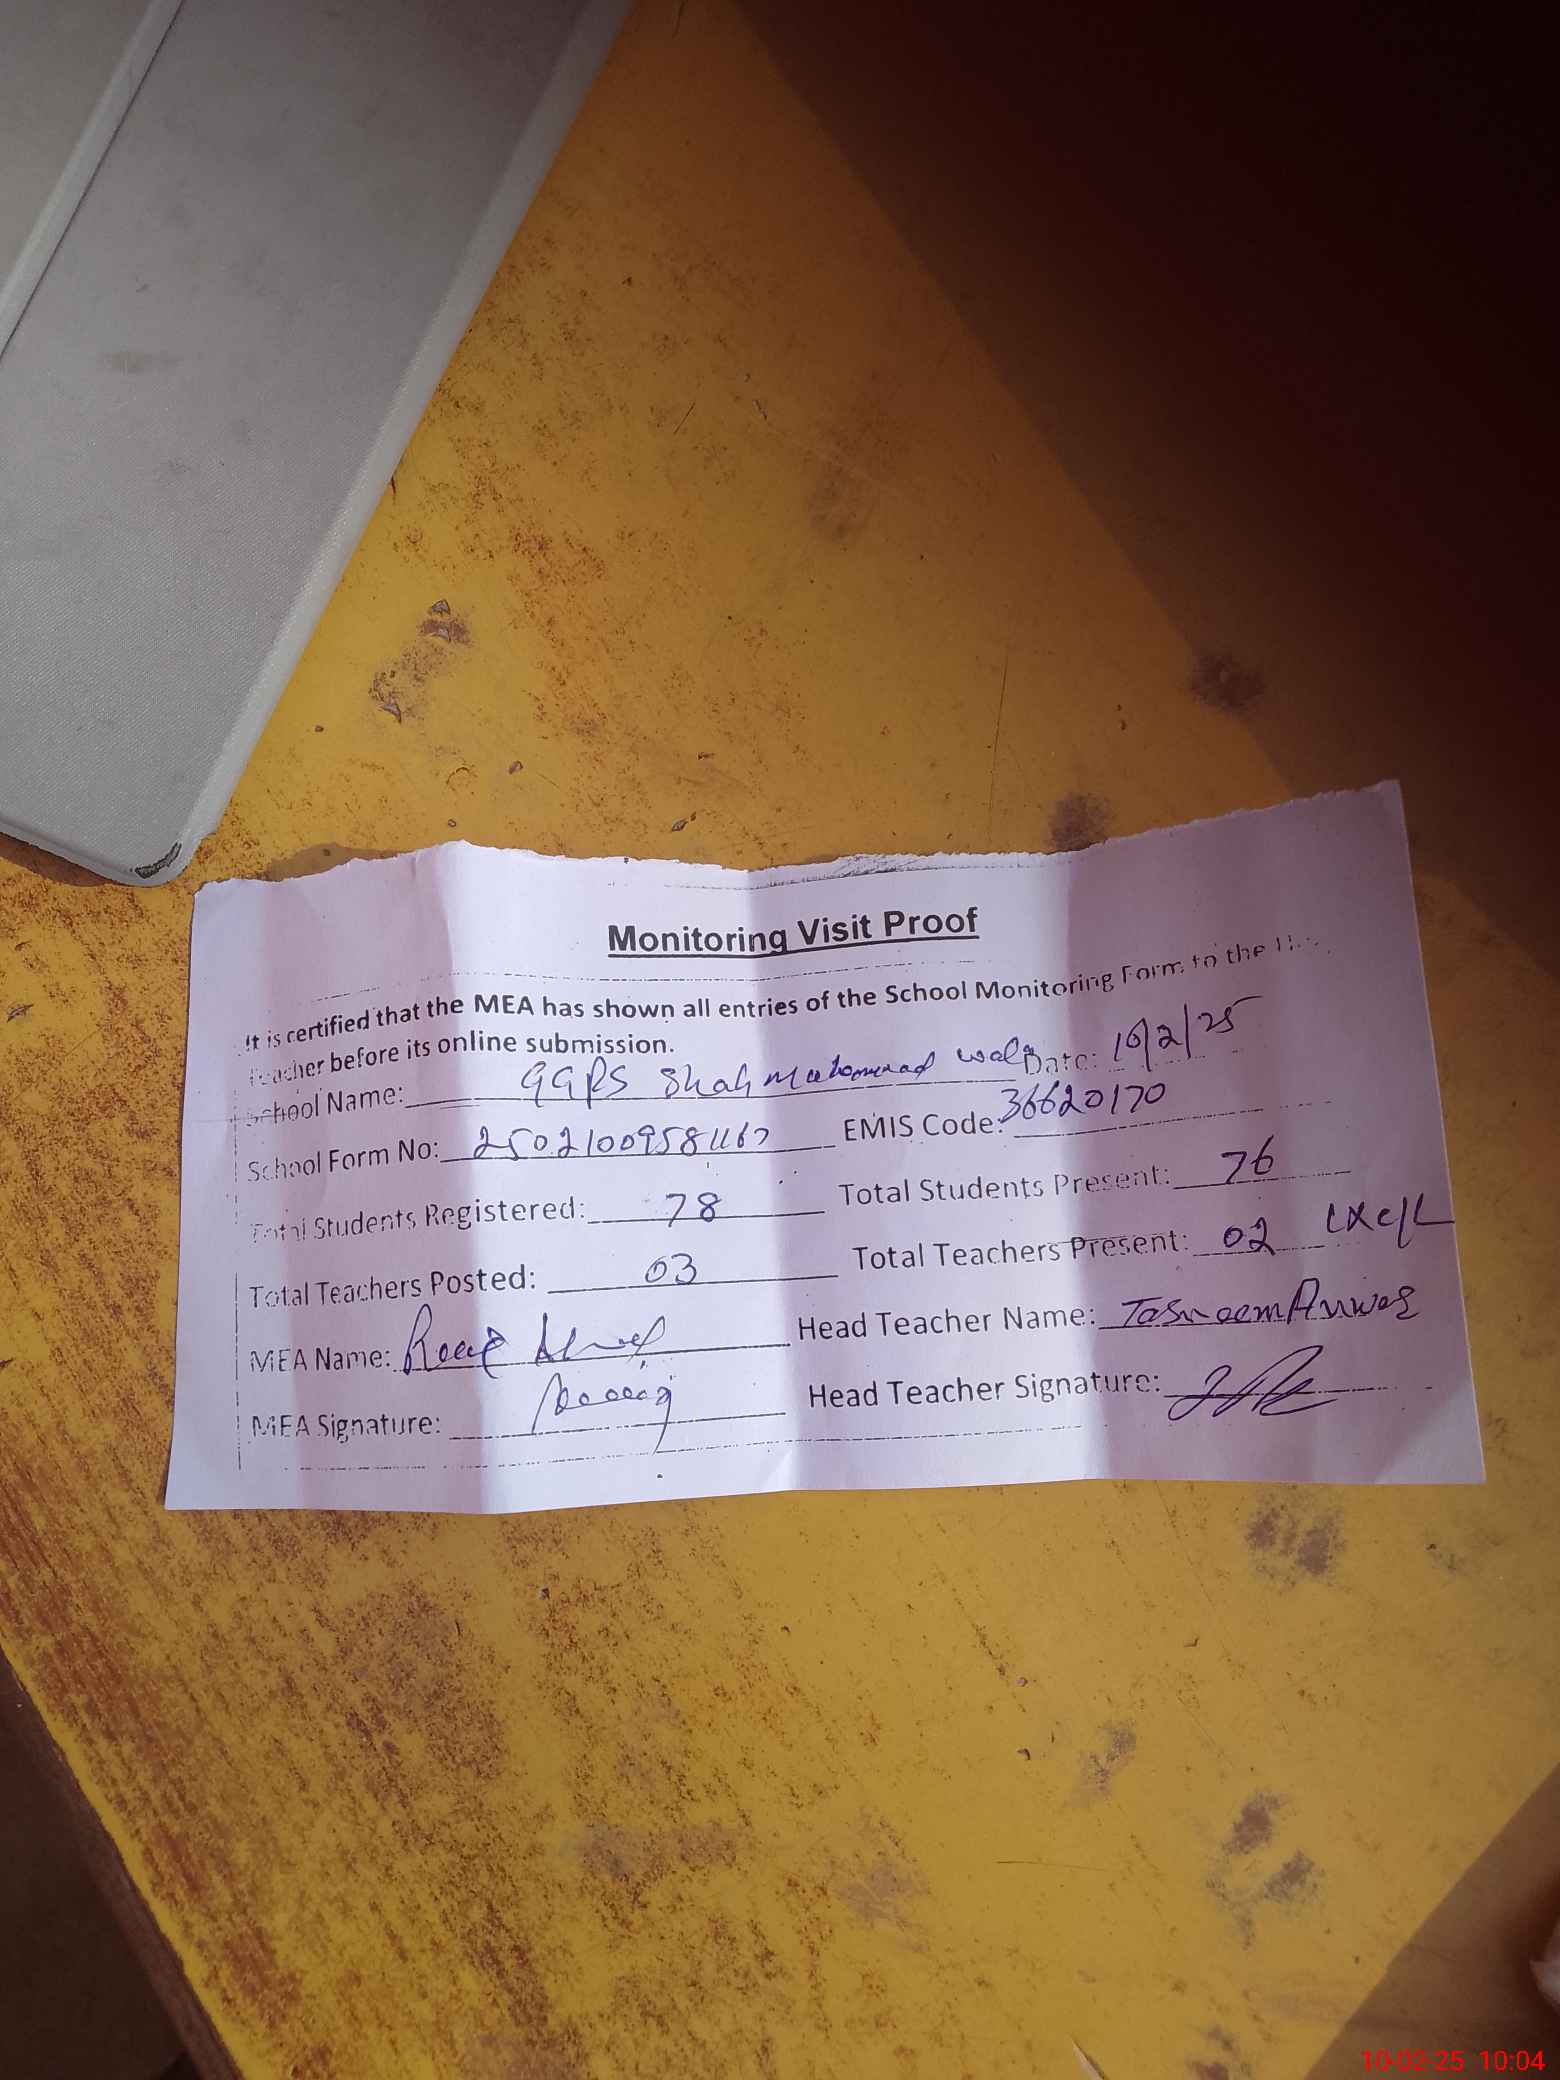 Monitoring Visit Proof
It is certified that the MEA has shown all entries of the School Monitoring Form to the
Teacher before its online submission.
School Name: GGPS Shah Muhammad wala Date: 10/2/25
School Form No: EMIS Code: 36620170
Total Students Registered: 78 Total Students Present: 76
Total Teachers Posted: 03 Total Teachers Present: 02
MEA Name: Head Teacher Name: Tasneem Anwar
MEA Signature: Head Teacher Signature:
10-02-25 10:04